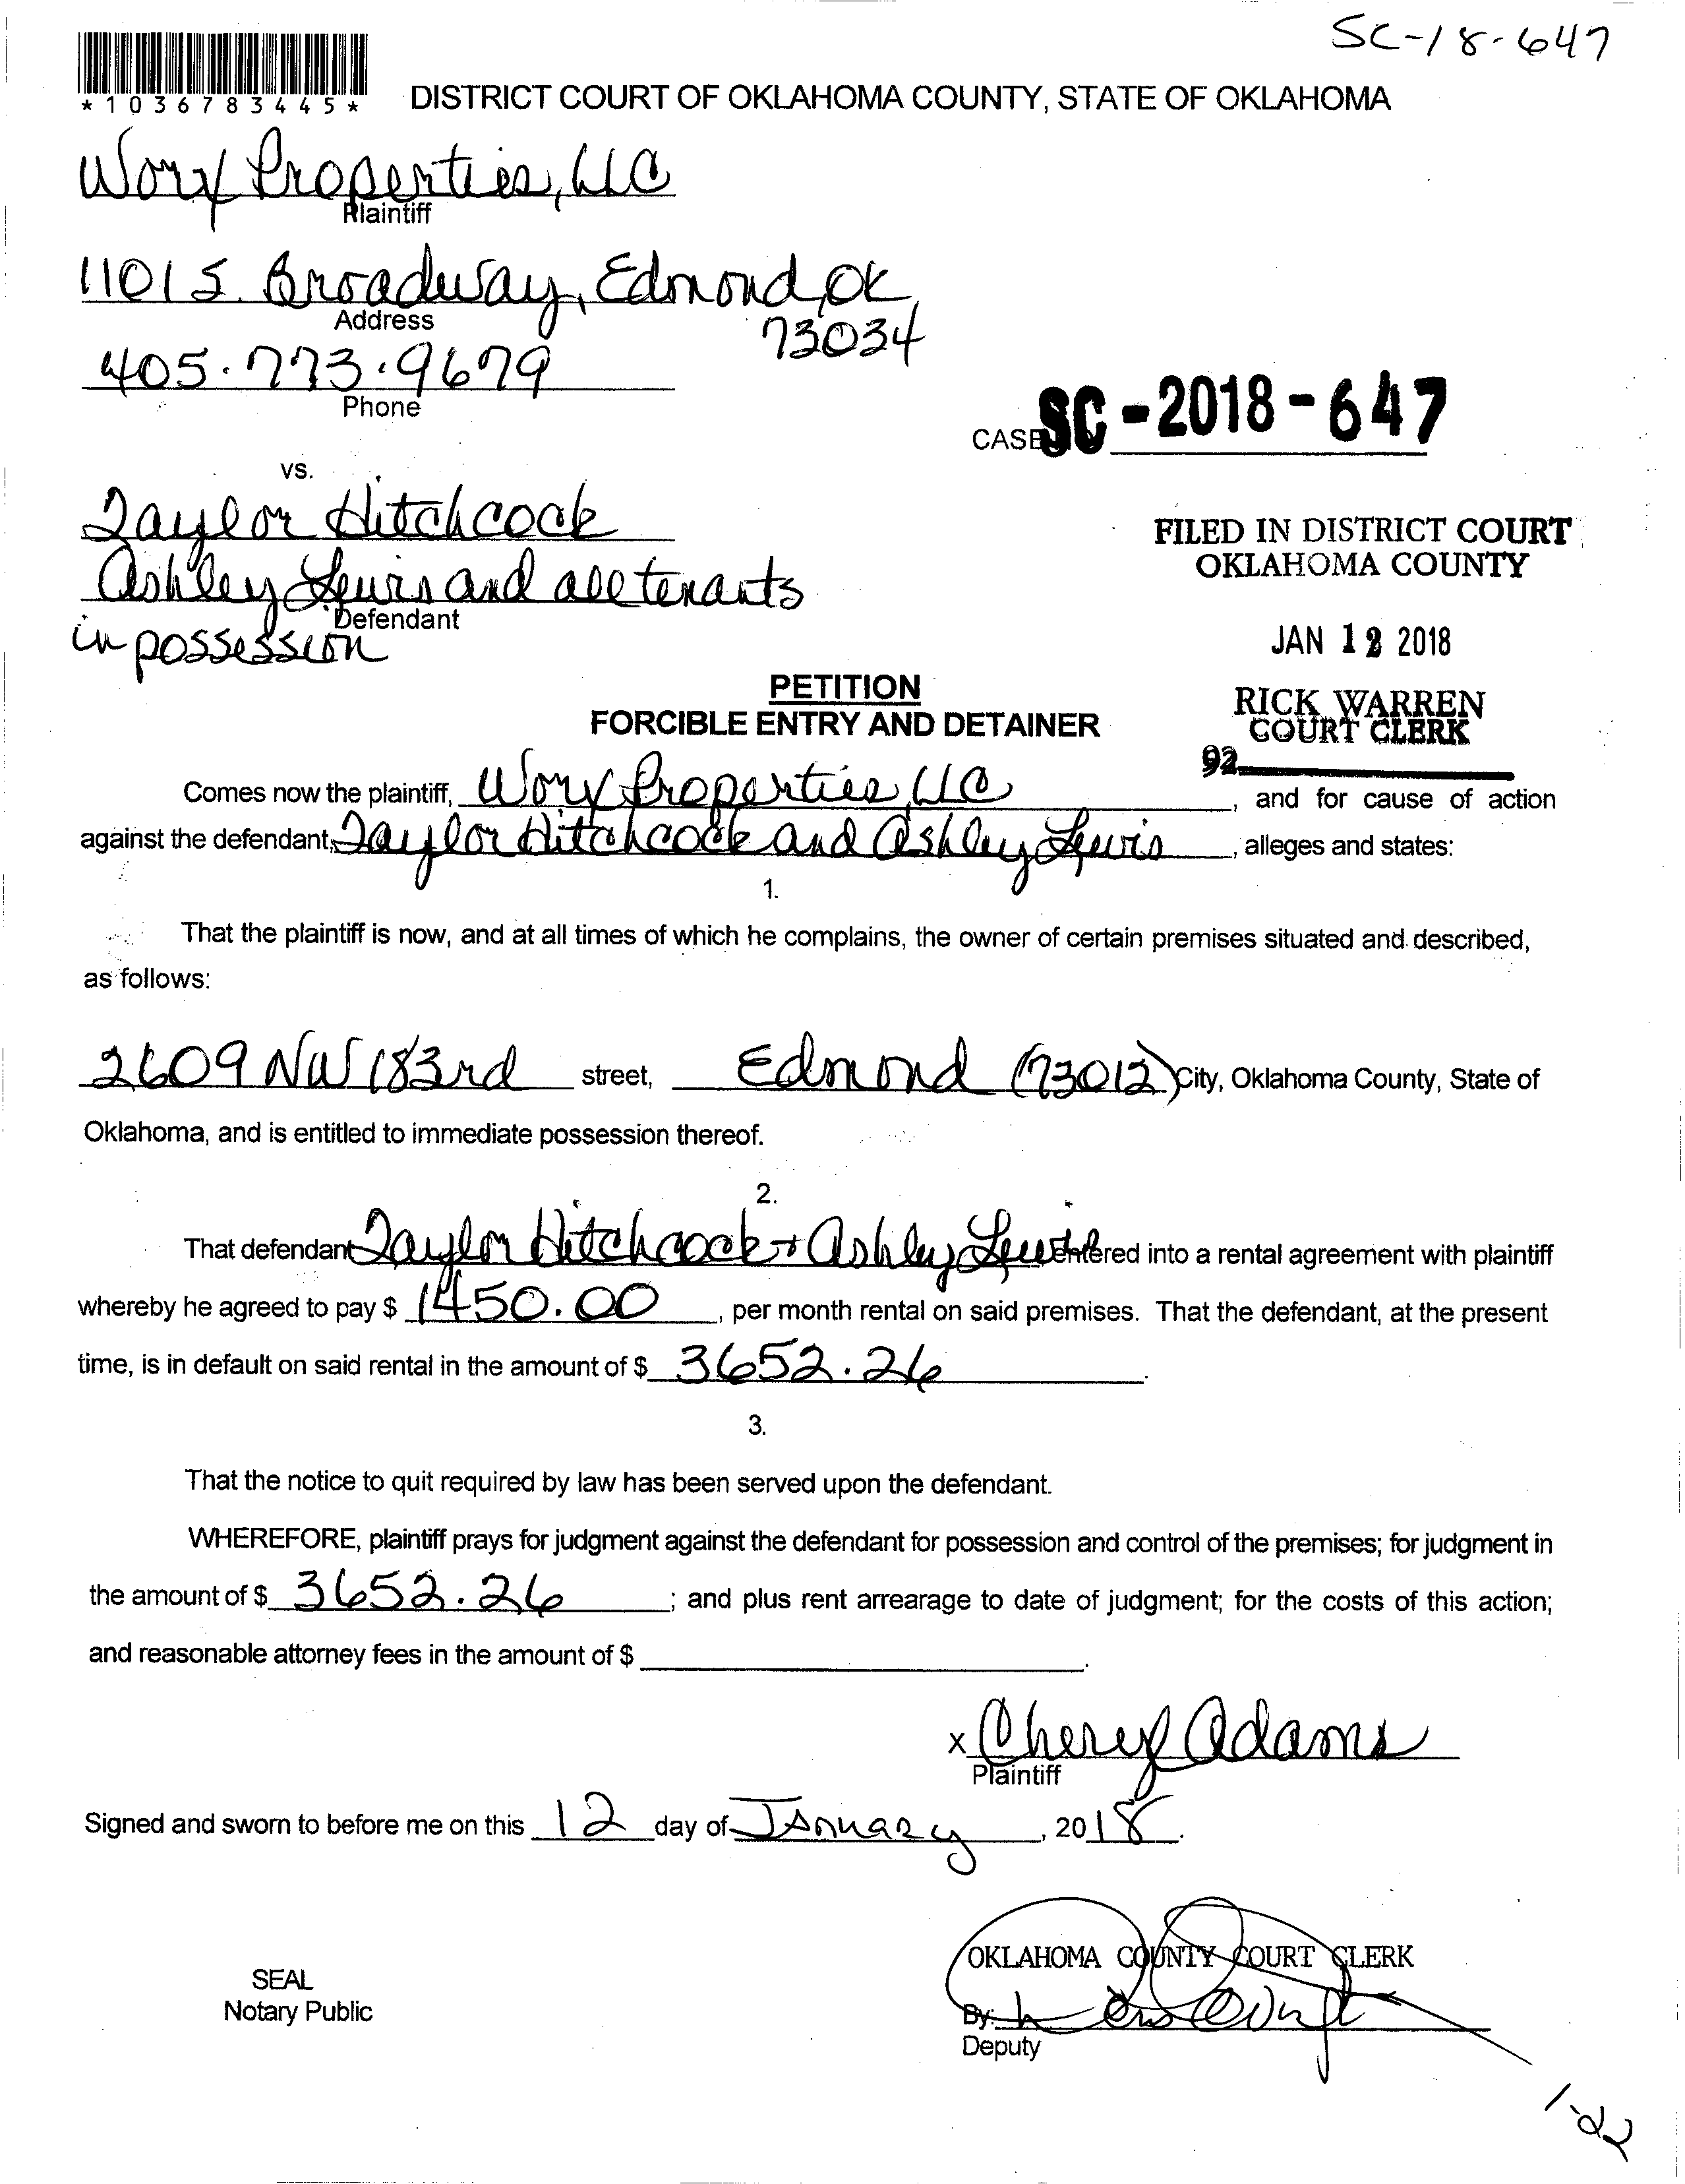 SC-18-647
*1036783445*
DISTRICT COURT OF OKLAHOMA COUNTY, STATE OF OKLAHOMA
Worx Properties, LLC
Plaintiff
1101 S. Broadway, Edmond, OK
Address
73034
405.773.9679
Phone
CASE SC-2018-647
vs.
Taylor Hitchcock
Ashley Lewis and all tenants
Defendant
in possession
FILED IN DISTRICT COURT
OKLAHOMA COUNTY
JAN 12 2018
RICK WARREN
COURT CLERK
92
PETITION
FORCIBLE ENTRY AND DETAINER
Comes now the plaintiff, Worx Properties, LLC, and for cause of action
against the defendant, Taylor Hitchcock and Ashley Lewis, alleges and states:
1.
That the plaintiff is now, and at all times of which he complains, the owner of certain premises situated and described,
as follows:
2609 NW 183rd street, Edmond (73012) City, Oklahoma County, State of
Oklahoma, and is entitled to immediate possession thereof.
2.
That defendant Taylor Hitchcock + Ashley Lewis entered into a rental agreement with plaintiff
whereby he agreed to pay $ 1450.00, per month rental on said premises. That the defendant, at the present
time, is in default on said rental in the amount of $ 3652.26.
3.
That the notice to quit required by law has been served upon the defendant.
WHEREFORE, plaintiff prays for judgment against the defendant for possession and control of the premises; for judgment in
the amount of $ 3652.26; and plus rent arrearage to date of judgment; for the costs of this action;
and reasonable attorney fees in the amount of $ .
x Cheryl Adams
Plaintiff
Signed and sworn to before me on this 12 day of January, 2018.
SEAL
Notary Public
OKLAHOMA COUNTY COURT CLERK
By:
Deputy
1-22